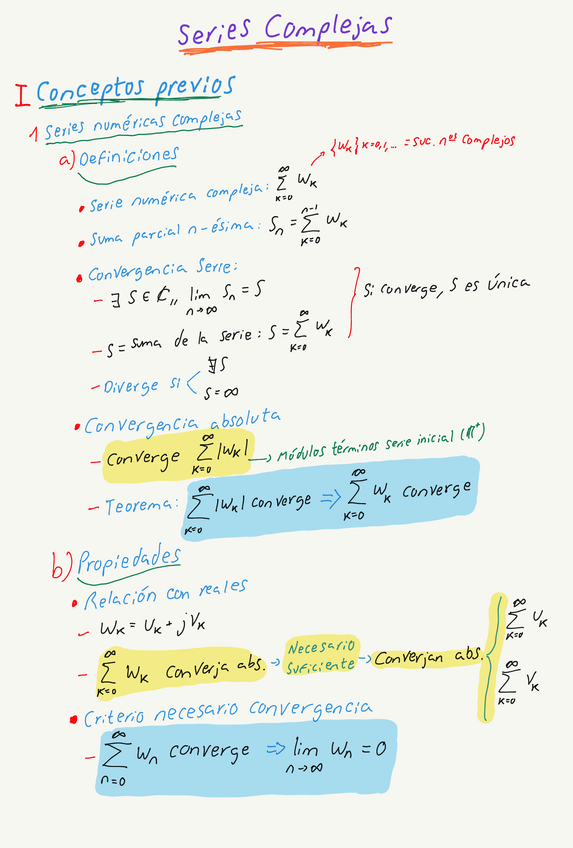 Series Complejas
I Conceptos previos
1 Series numéricas complejas
a) Definiciones
{Wₖ} k=0,1,... = suc. nᵒˢ complejos
• Serie numérica compleja: ∑_{k=0}^{∞} Wₖ
• Suma parcial n-ésima: Sₙ = ∑_{k=0}^{n-1} Wₖ
• Convergencia Serie:
- ∃ S ∈ ℂ,, lim_{n→∞} Sₙ = S
- S = suma de la serie: S = ∑_{k=0}^{∞} Wₖ
Si converge, S es única
- Diverge si < ∄ S
S = ∞
• Convergencia absoluta
- Converge ∑_{k=0}^{∞} |Wₖ| → Módulos términos serie inicial (ℝ⁺)
- Teorema: ∑_{k=0}^{∞} |Wₖ| converge ⇒ ∑_{k=0}^{∞} Wₖ converge
b) Propiedades
• Relación con reales
- Wₖ = Uₖ + jVₖ
- ∑_{k=0}^{∞} Wₖ Converja abs. → Necesario suficiente → Converjan abs. { ∑_{k=0}^{∞} Uₖ
∑_{k=0}^{∞} Vₖ
• Criterio necesario convergencia
- ∑_{n=0}^{∞} Wₙ converge ⇒ lim_{n→∞} Wₙ = 0